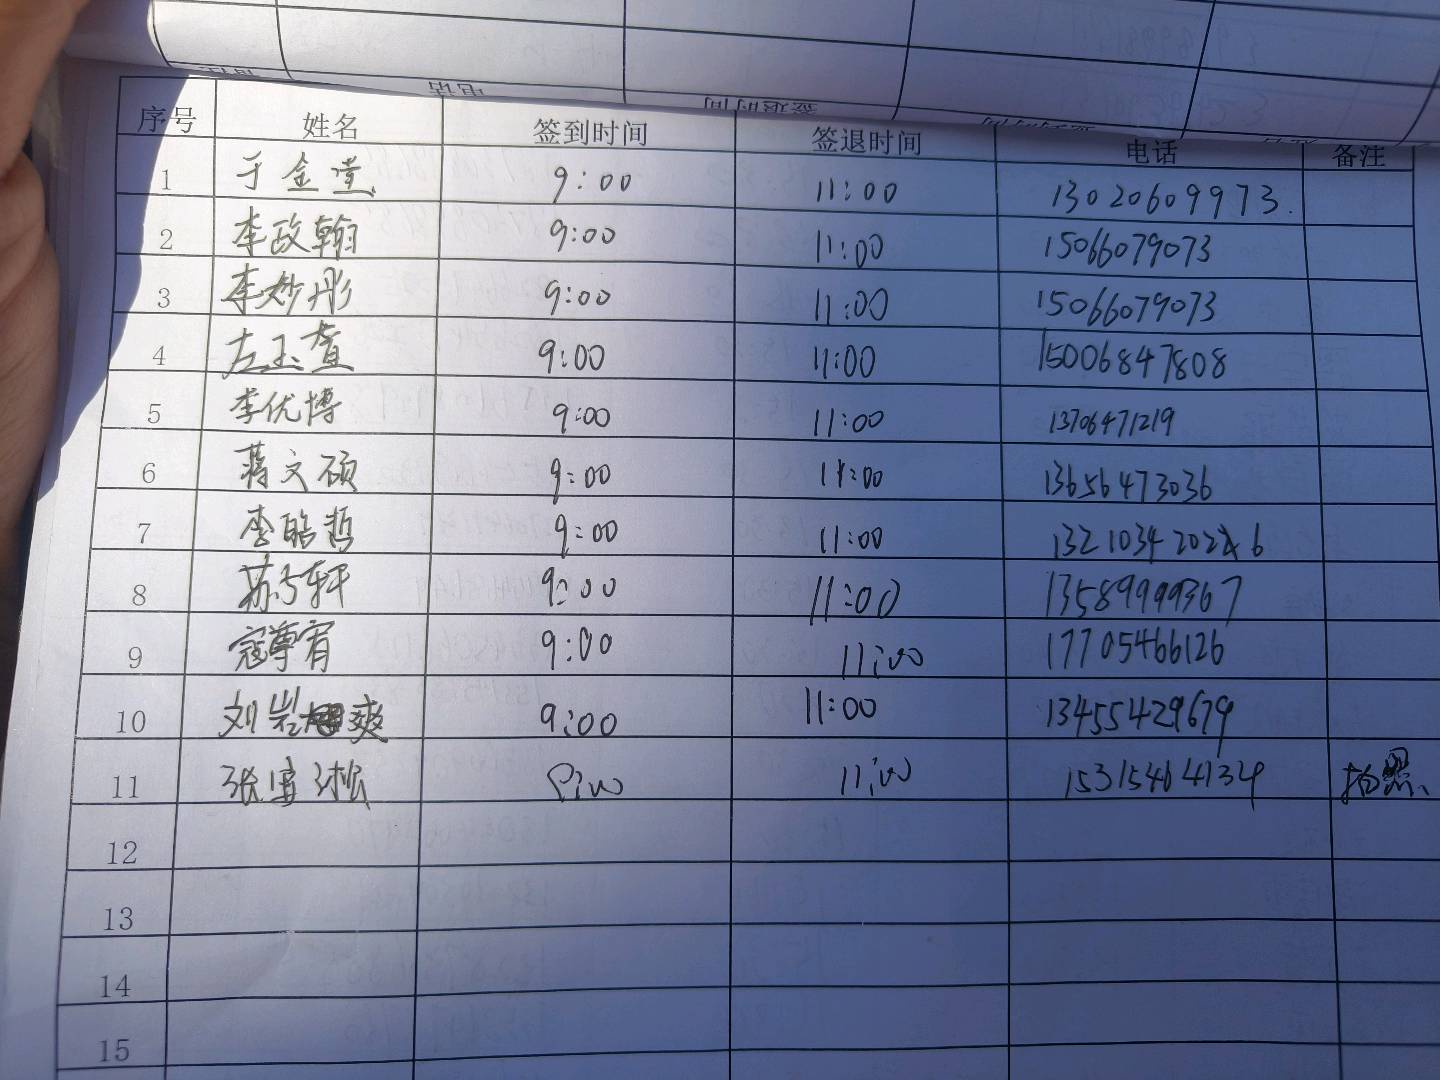 序号 姓名 签到时间 签退时间 电话 备注
1 于金堂 9:00 11:00 13020609973.
2 李政翰 9:00 11:00 15066079073
3 李妙彤 9:00 11:00 15066079073
4 左玉萱 9:00 11:00 15006847808
5 李优博 9:00 11:00 13706471219
6 蒋文硕 9:00 11:00 13656473036
7 李皓哲 9:00 11:00 6
8 苏子轩 9:00 11:00 13589999367
9 寇尊宥 9:00 11:00 17705466126
10 刘岩爽 9:00 11:00 13455429679
11 张 松 9:00 11:00 15315464134 拍照
12
13
14
15